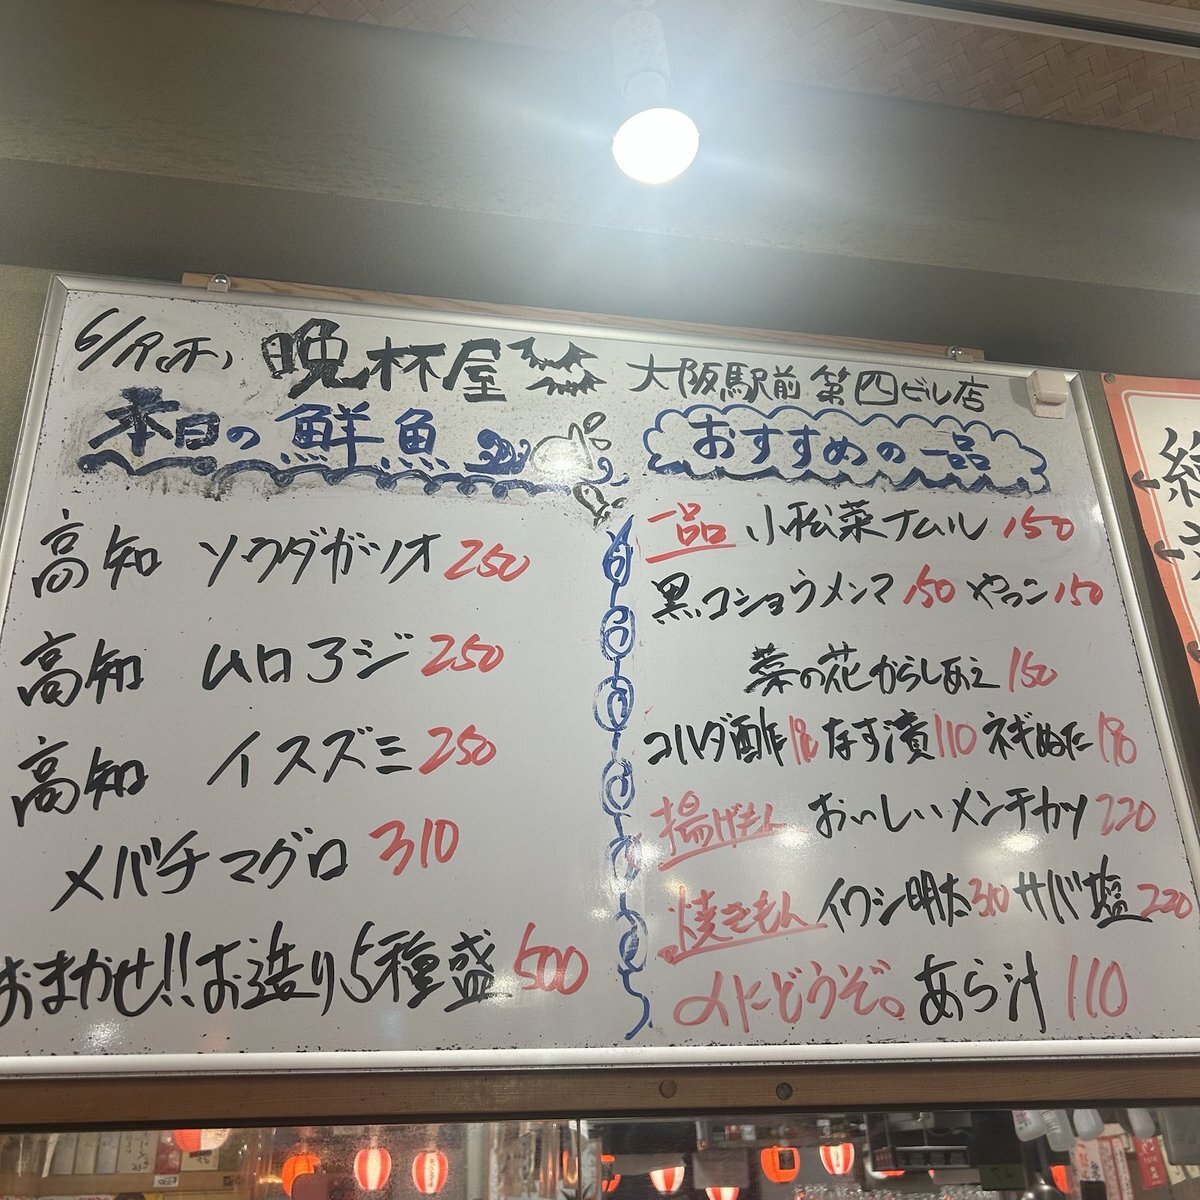 6/19(木) 晩杯屋 大阪駅前第四ビル店
本日の鮮魚
高知 ソウダガツオ 250
高知 ムロアジ 250
高知 イスズミ 250
メバチマグロ 310
おまかせ!!お造り5種盛 500
おすすめの一品
一品 小松菜ナムル 150
黒コショウメンマ 150 やっこ 150
菜の花からしあえ 150
コハダ酢 なす漬 110 ネギぬた 190
揚げもん おいしいメンチカツ 220
焼きもん イワシ明太 310 サバ塩 220
〆にどうぞ。 あら汁 110